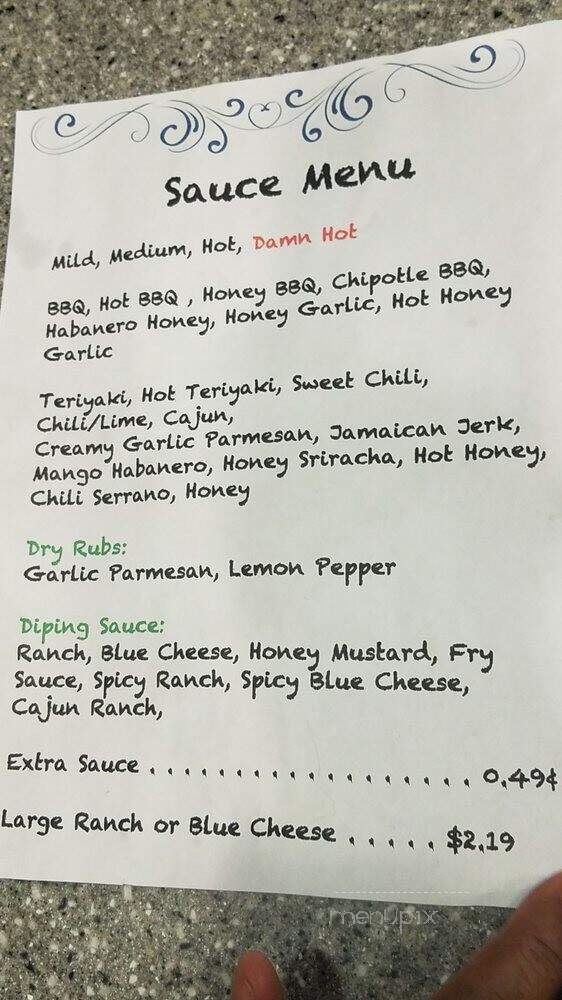 Sauce Menu
Mild, Medium, Hot, Damn Hot
BBQ, Hot BBQ , Honey BBQ, Chipotle BBQ,
Habanero Honey, Honey Garlic, Hot Honey
Garlic
Teriyaki, Hot Teriyaki, Sweet Chili,
Chili/Lime, Cajun,
Creamy Garlic Parmesan, Jamaican Jerk,
Mango Habanero, Honey Sriracha, Hot Honey,
Chili Serrano, Honey
Dry Rubs:
Garlic Parmesan, Lemon Pepper
Diping Sauce:
Ranch, Blue Cheese, Honey Mustard, Fry
Sauce, Spicy Ranch, Spicy Blue Cheese,
Cajun Ranch,
Extra Sauce . . . . . . . . . . . . . . . . . . . 0.49¢
Large Ranch or Blue Cheese . . . . . $2.19
menupix